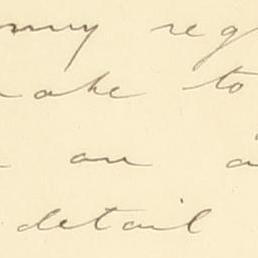 my reg
make to
an a
detail